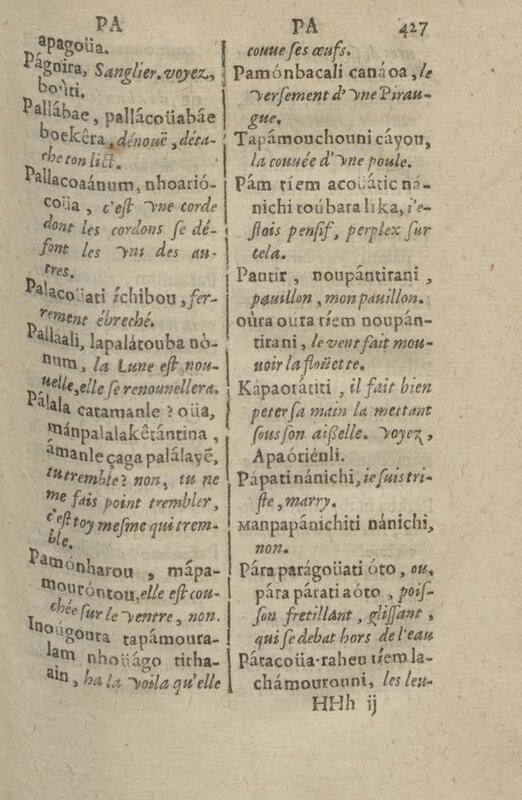 PA
apagoüa.
Págnira, Sanglier. voyez,
bo'íti.
Pallábae, pallácoüabáe
boekêra, dénouë, déta-
che ton lict.
Pallacoaánum, nhoarió-
coüa, c'est vne corde
dont les cordons se dé-
font les vns des au-
tres.
Palacoüati íchibou, fer-
rement ébreché.
Palláali, lapalátouba nò-
num, la Lune est nou-
uelle, elle se renounellera.
Pálala catamanle? oüa,
mánpalalakêtántina,
ámanle çaga palálayẽ,
tu tremble? non, tu ne
me fais point trembler,
c'est toy mesme qui trem-
ble.
Pamónharou, mápa-
mouróntou, elle est cou-
chée sur le ventre, non.
Inoúgoura tapámoura-
lam nhoüágo tirha-
ain, ha la voila qu'elle
PA 427
couue ses œufs.
Pamónbacali canáoa, le
versement d'vne Pirau-
gue.
Tapámouchouni cáyou,
la couuée d'vne poule.
Pám tíem acoüátic ná-
nichi toúbara lika, i'e-
stois pensif, perplex sur
cela.
Pantir, noupántirani,
pauillon, mon pauillon.
oùra oura tíem noupán-
tirani, le vent fait mou-
uoir la floüette.
Kápaotátiti, il fait bien
peter sa main la mettant
sous son aißelle. Voyez,
Apaóriénli.
Pápati nánichi, ie suis tri-
ste, marry.
manpapánichiti nánichi,
non.
Pára parágoüati óto, ou,
pára párati aóto, pois-
son fretillant, glissant,
qui se debat hors de l'eau
Pátacoüa-raheu tíem la-
chámourouni, les leu-
HHh ij